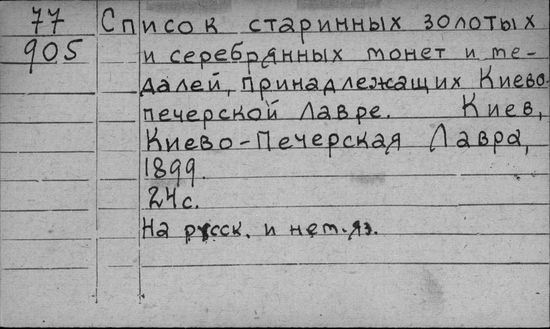 77 Список старинных золотых
905 и серебрянных монет и ме-
далей, принадлежащих Киево-
печерской Лавре. Киев,
Киево-Печерская Лавра,
1899.
24с.
На русск. и нем. яз.